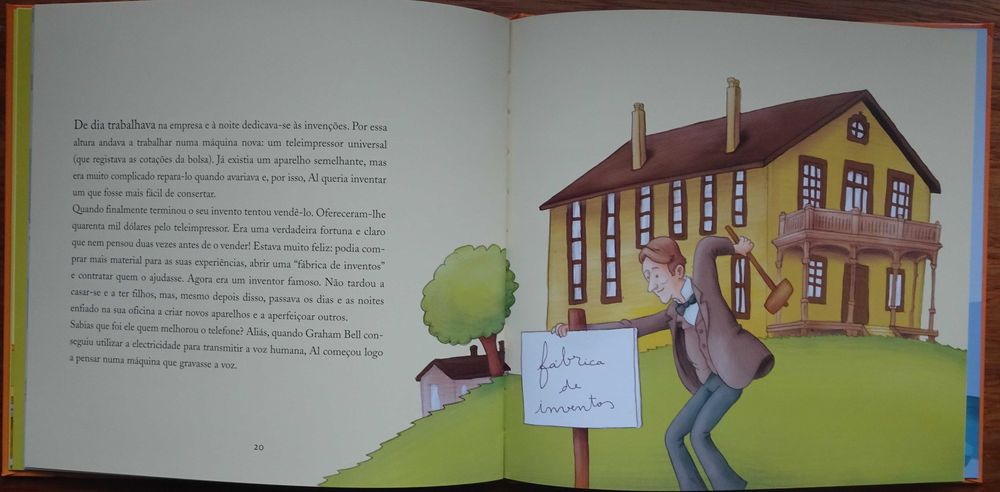 De dia trabalhava na empresa e à noite dedicava-se às invenções. Por essa
altura andava a trabalhar numa máquina nova: um teleimpressor universal
(que registava as cotações da bolsa). Já existia um aparelho semelhante, mas
era muito complicado repara-lo quando avariava e, por isso, Al queria inventar
um que fosse mais fácil de consertar.
Quando finalmente terminou o seu invento tentou vendê-lo. Ofereceram-lhe
quarenta mil dólares pelo teleimpressor. Era uma verdadeira fortuna e claro
que nem pensou duas vezes antes de o vender! Estava muito feliz: podia com-
prar mais material para as suas experiências, abrir uma “fábrica de inventos”
e contratar quem o ajudasse. Agora era um inventor famoso. Não tardou a
casar-se e a ter filhos, mas, mesmo depois disso, passava os dias e as noites
enfiado na sua oficina a criar novos aparelhos e a aperfeiçoar outros.
Sabias que foi ele quem melhorou o telefone? Aliás, quando Graham Bell con-
seguiu utilizar a electricidade para transmitir a voz humana, Al começou logo
a pensar numa máquina que gravasse a voz.
20
fábrica
de
inventos